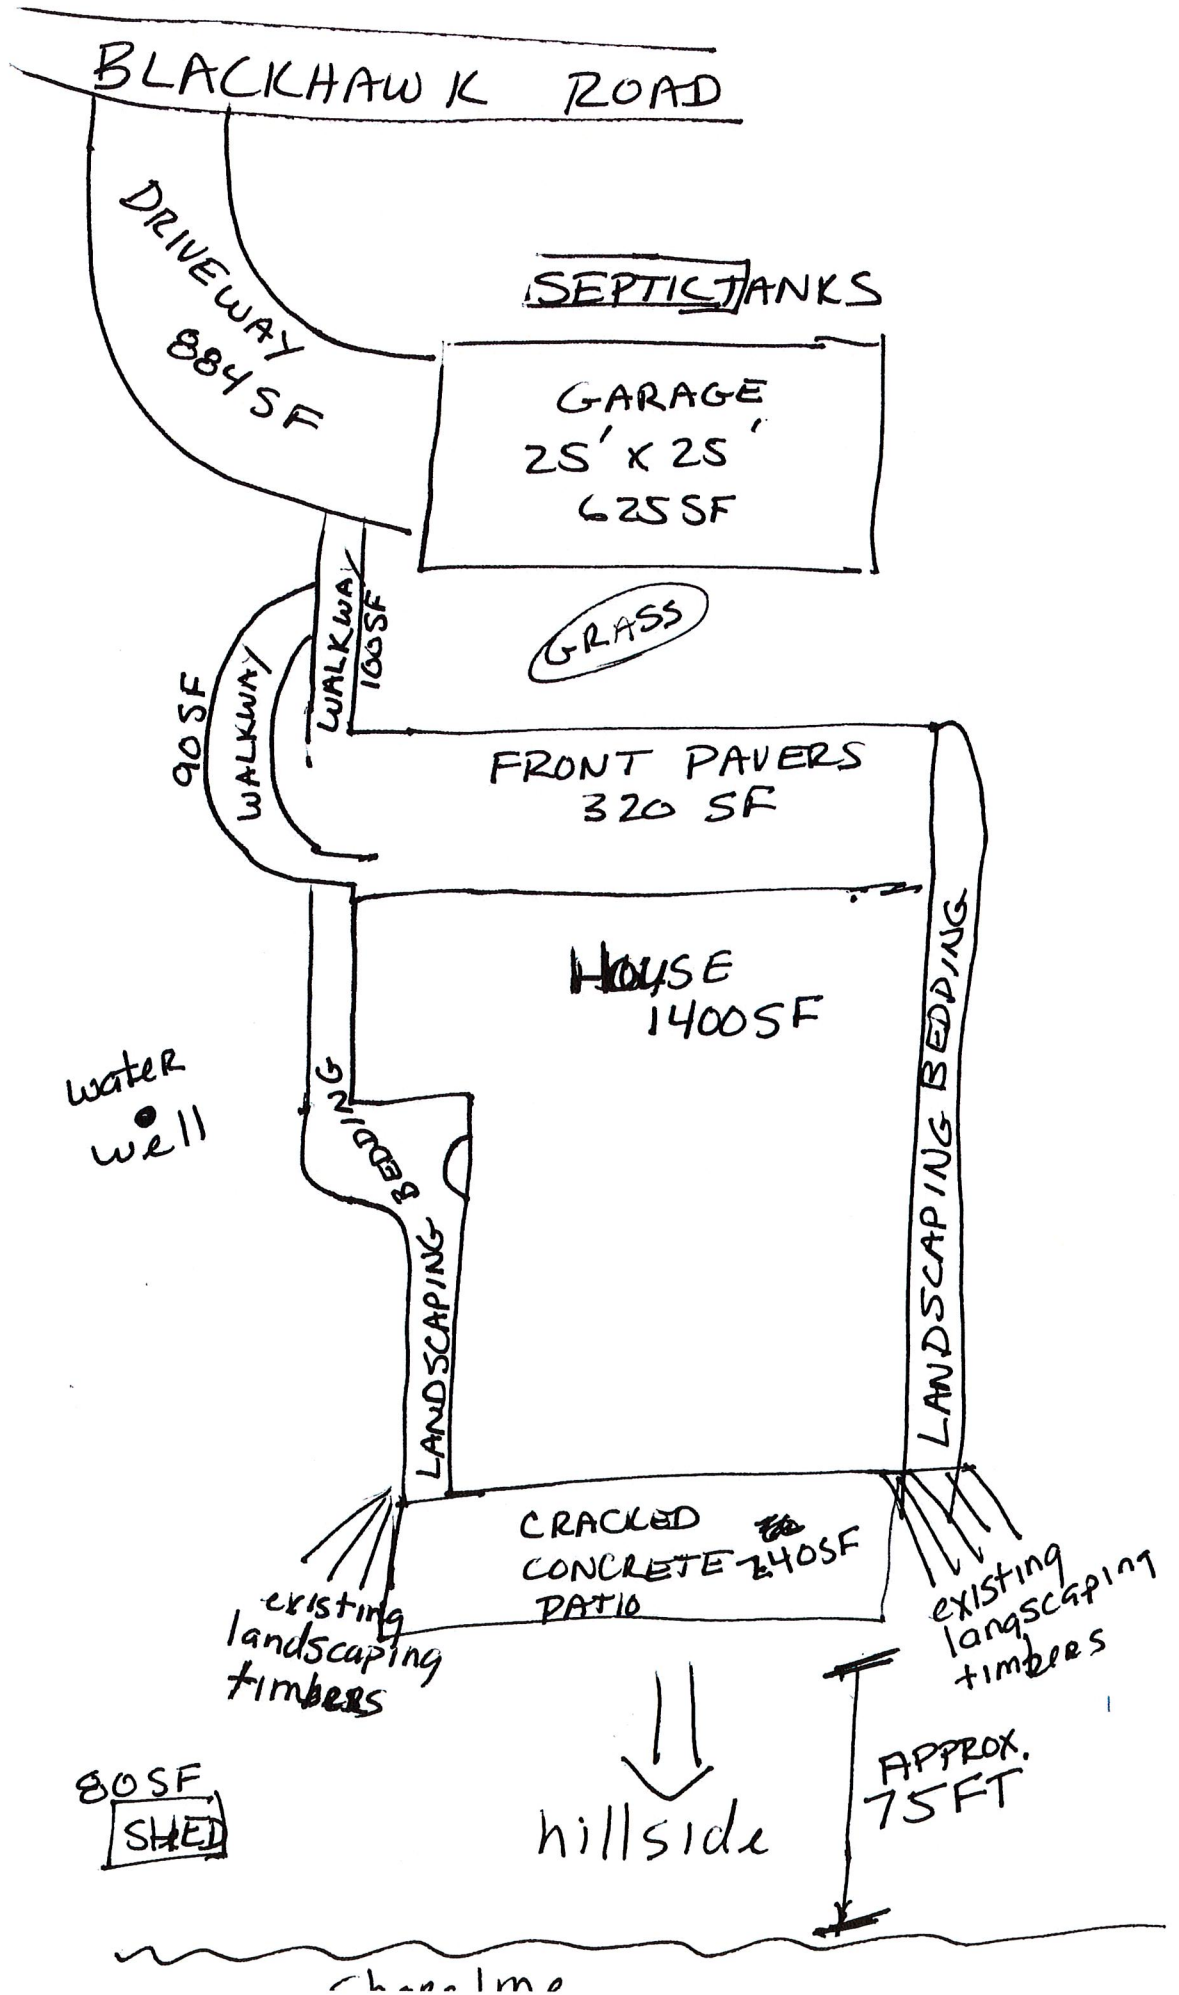 BLACKHAWK ROAD
DRIVEWAY
884 SF
SEPTIC TANKS
GARAGE
25' x 25'
625 SF
WALKWAY
100 SF
GRASS
90 SF
WALKWAY
FRONT PAVERS
320 SF
HOUSE
1400 SF
water
well
LANDSCAPING BEDDING
LANDSCAPING BEDDING
CRACKED
CONCRETE 240 SF
PATIO
existing
landscaping
timbers
existing
langscaping
timbers
80 SF
SHED
hillside
APPROX.
75 FT